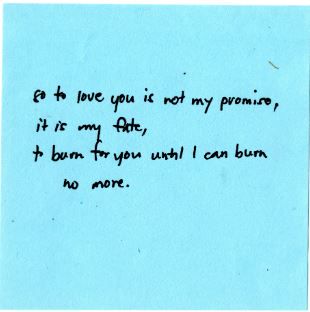 so to love you is not my promise,
it is my fate,
to burn for you until I can burn
no more.